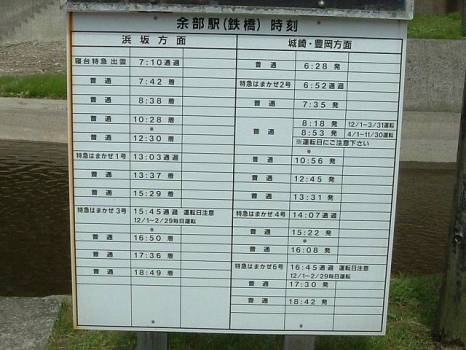 余部駅(鉄橋) 時刻
浜坂方面
寝台特急 出雲 7:10通過
普通 7:42 着
普通 8:38 着
普通 10:28 着
※
普通 12:30 着
特急はまかぜ1号 13:03通過
普通 13:37 着
普通 15:29 着
特急はまかぜ3号 15:45通過 運転日注意
12/1~2/29毎日運転
普通 16:50 着
普通 17:36 着
普通 18:49 着
※
城崎・豊岡方面
普通 6:28 発
特急はまかぜ2号 6:52通過
普通 7:35 発
普通 8:18 発 12/1~3/31運転
8:53 発 4/1~11/30運転
※運転日にご注意下さい
普通 10:56 発
普通 12:45 発
普通 13:31 発
特急はまかぜ4号 14:07通過
普通 15:22 発
※
普通 16:08 発
特急はまかぜ6号 16:45通過 運転日注意
12/1~2/29毎日運転
普通 17:30 発
普通 18:42 発
※